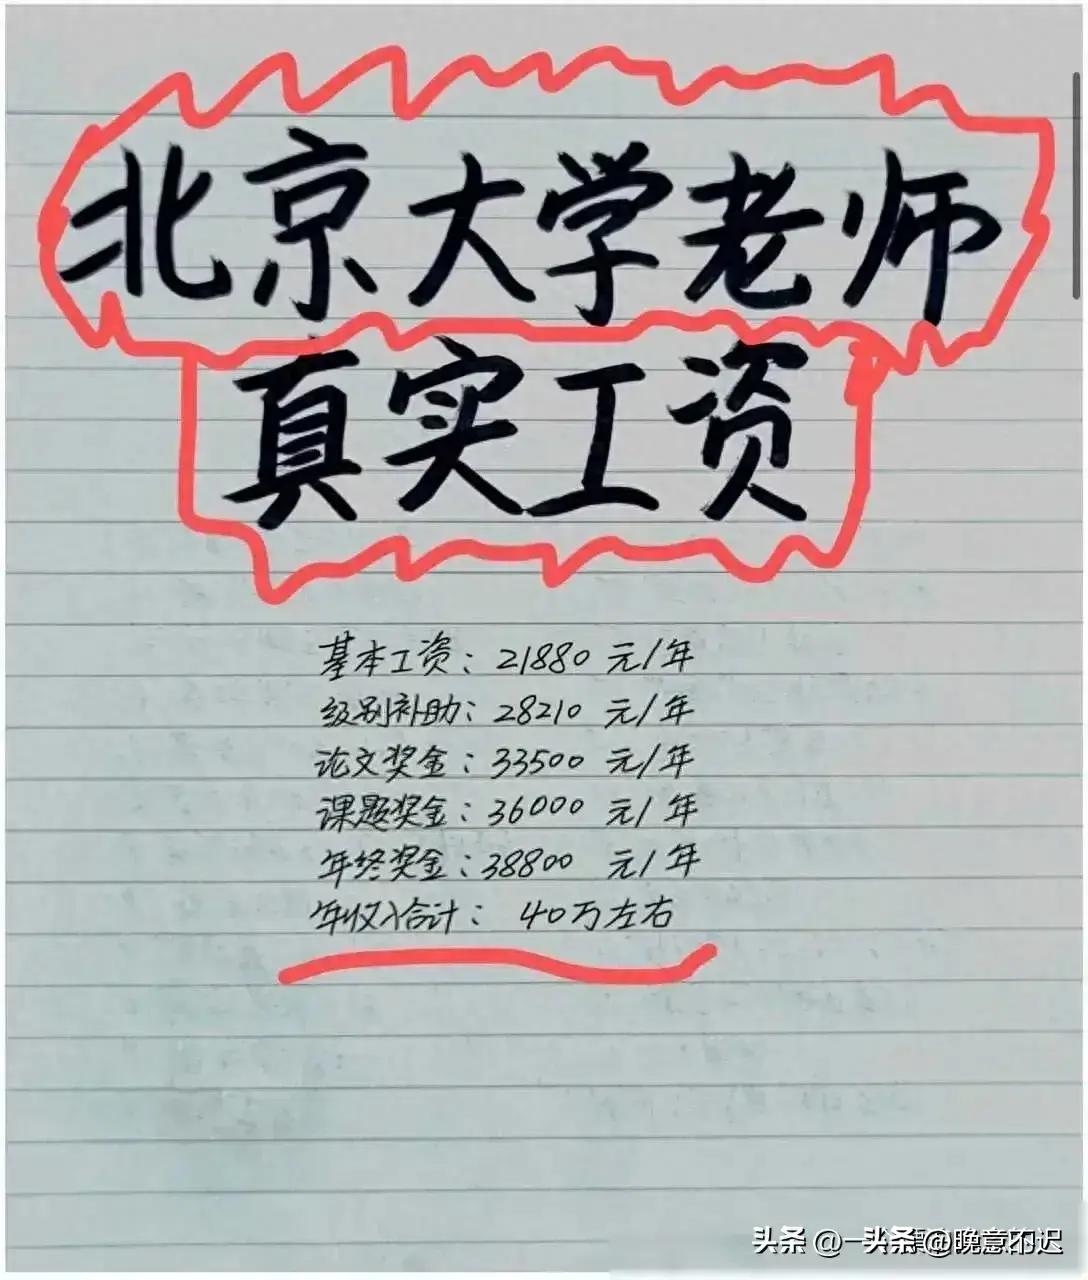 北京大学老师
真实工资
基本工资：21880 元/年
级别补助：28210 元/年
论文奖金：33500 元/年
课题奖金：36000 元/年
年终奖金：38800 元/年
年收入合计：40万左右
头条 @一 头条 @晚意的迟